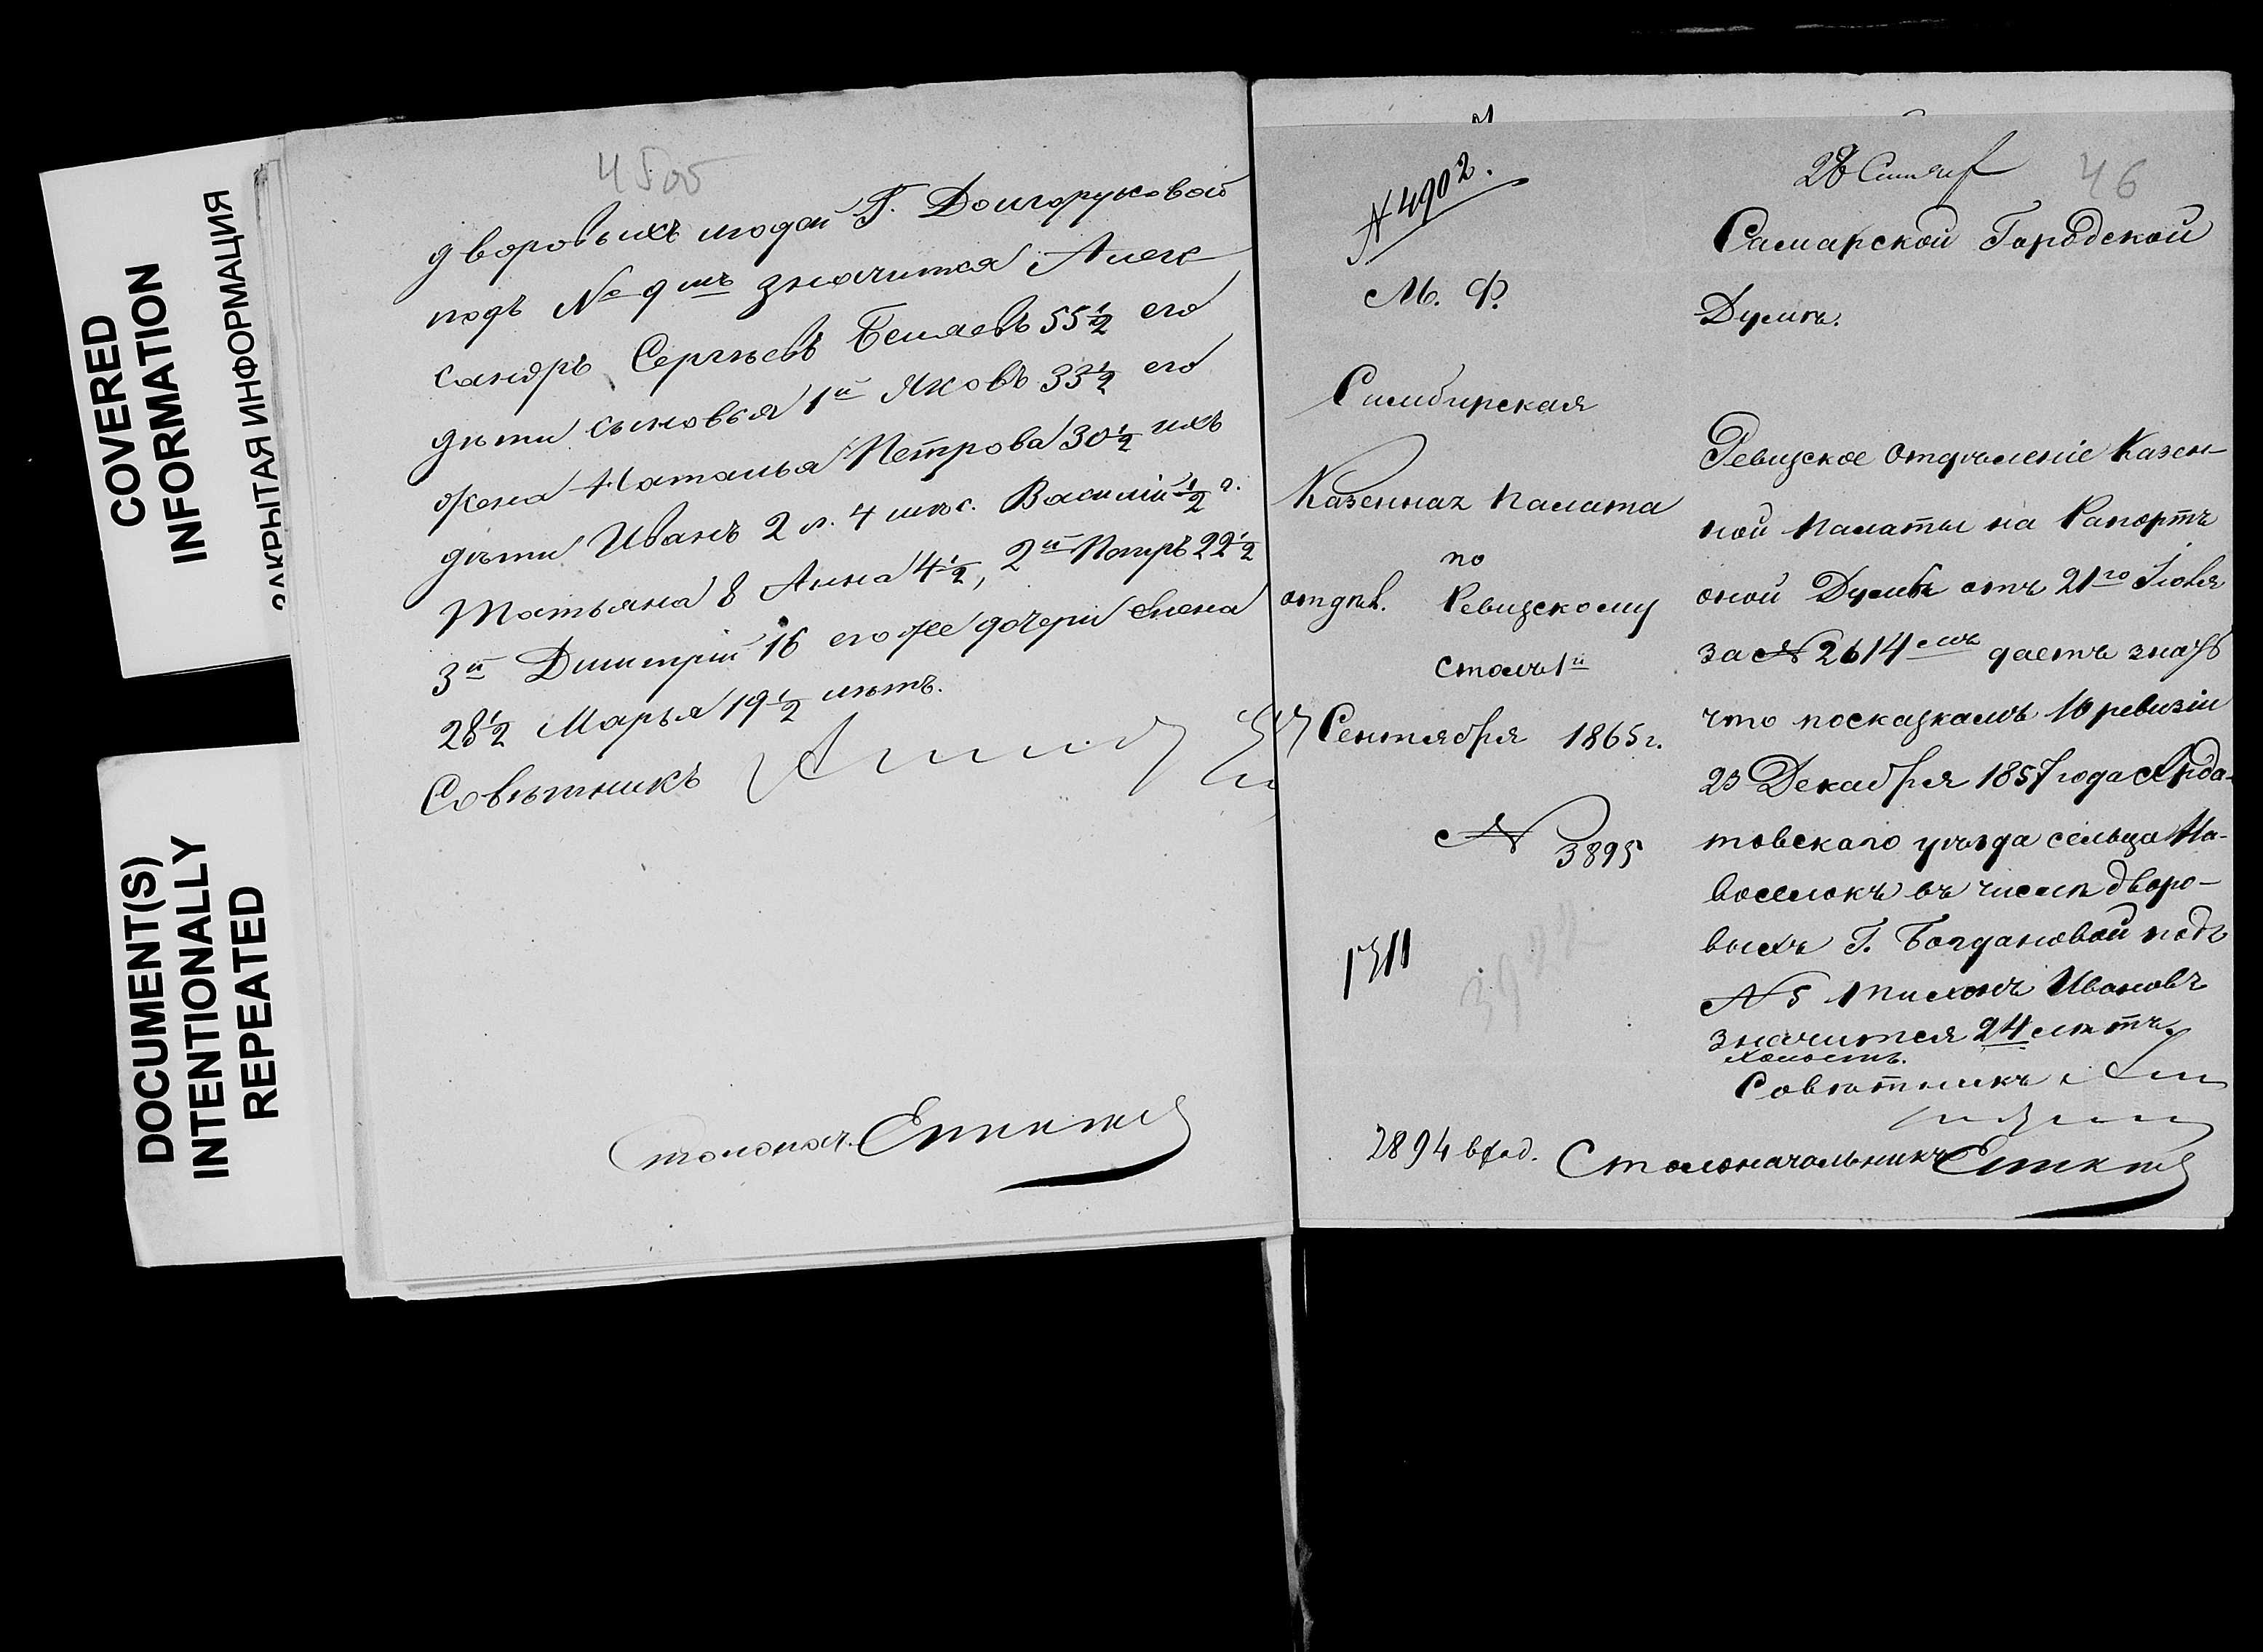 COVERED
INFORMATION
ЗАКРЫТАЯ ИНФОРМАЦИЯ
DOCUMENT(S)
INTENTIONALLY
REPEATED
45об
дворовыхъ людей Г. Долгоруковой
подъ № 9мъ значится Алек
сандръ Сергѣевъ Беляевъ 55½ его
дѣти сыновья 1й Яковъ 33½ его
жена Наталья Петрова 30½ ихъ
дѣти Иванъ 2 л. 4 мѣс. Василій ½ г.
Татьяна 8 Анна 4½, 2й Петръ 22½
3й Димитрій 16 его же дочери Елена
28½ Марья 19½ лѣтъ.
Совѣтникъ
Столонач.
№ 4902.
М. Ф.
Симбирская
Казенная палата
по
отдѣл. Ревизскому
столъ 1й
Сентября 1865 г.
№ 3895
1311
3922
2894 вход.
46
Самарской Городской
Думѣ.
Ревизское отдѣленіе Казен-
ной палаты на Рапортъ
оной Думы отъ 21го Іюля
за № 2614мъ даетъ знать
что посказкамъ 10 ревизіи
23 Декабря 1857 года Арда-
товскаго уѣзда сельца На-
воселокъ въ числѣ дворо-
выхъ Г. Богдановой подъ
№ 5 Тихонъ Ивановъ
значится 24 лѣтъ
холостъ.
Совѣтникъ
Столоначальникъ